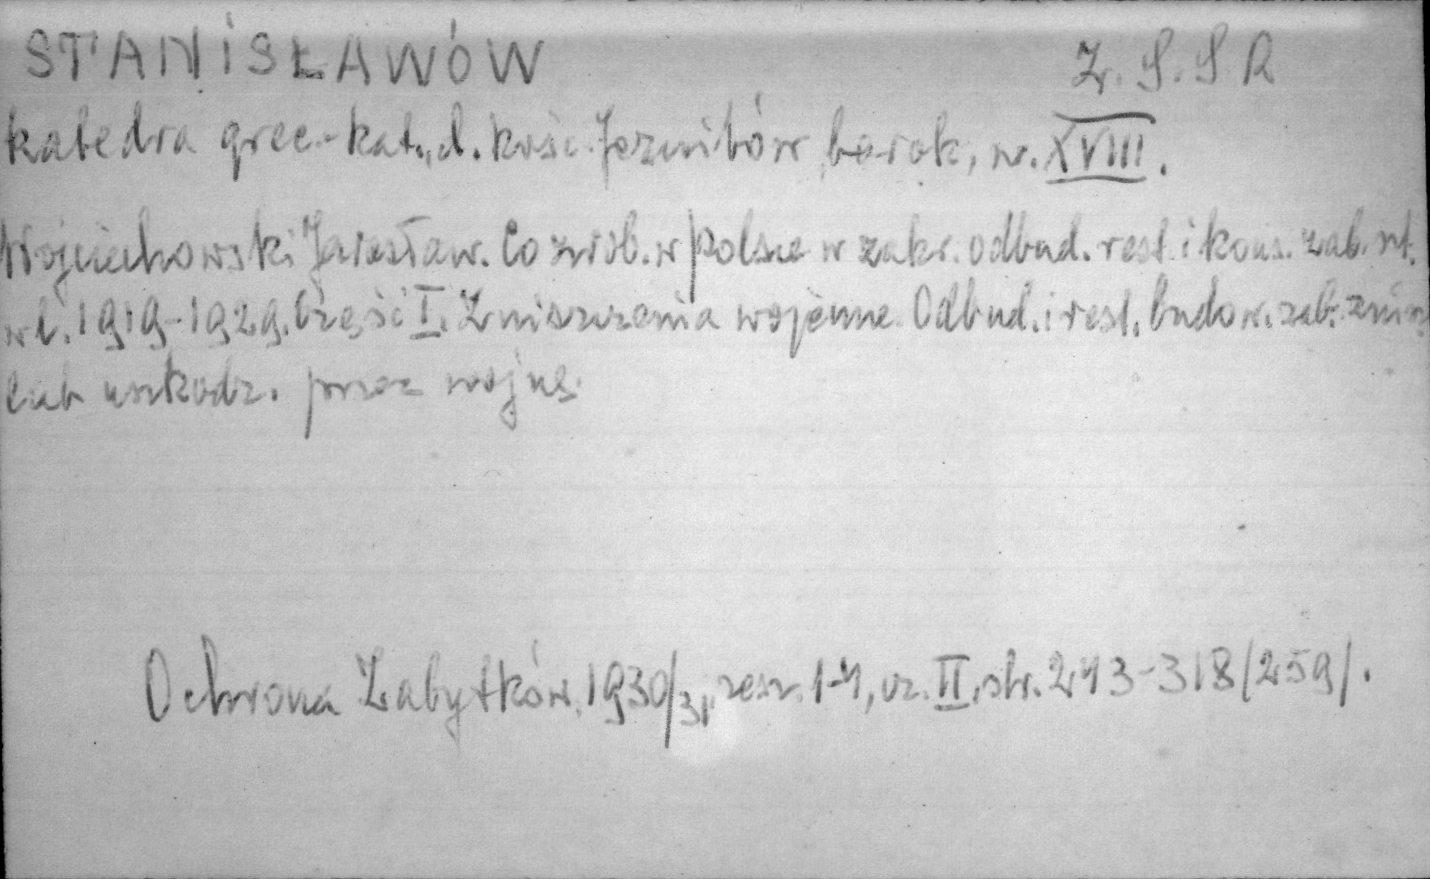 STANISŁAWÓW Z.S.S.R
katedra grec.-kat., d. kośc. Jezuitów, barok, w. XVIII.
Wojciechowski Jarosław. Co zrob. w Polsce w zakr. odbud. rest. i kons. zab. szt.
w l. 1919-1929. Część I. Zniszczenia wojenne. Odbud. i rest. budow. zab. zniszcz.
lub uszkodz. przez wojnę.
Ochrona Zabytków, 1930/31, zesz. 1-4, cz. II, str. 243-318/259/.